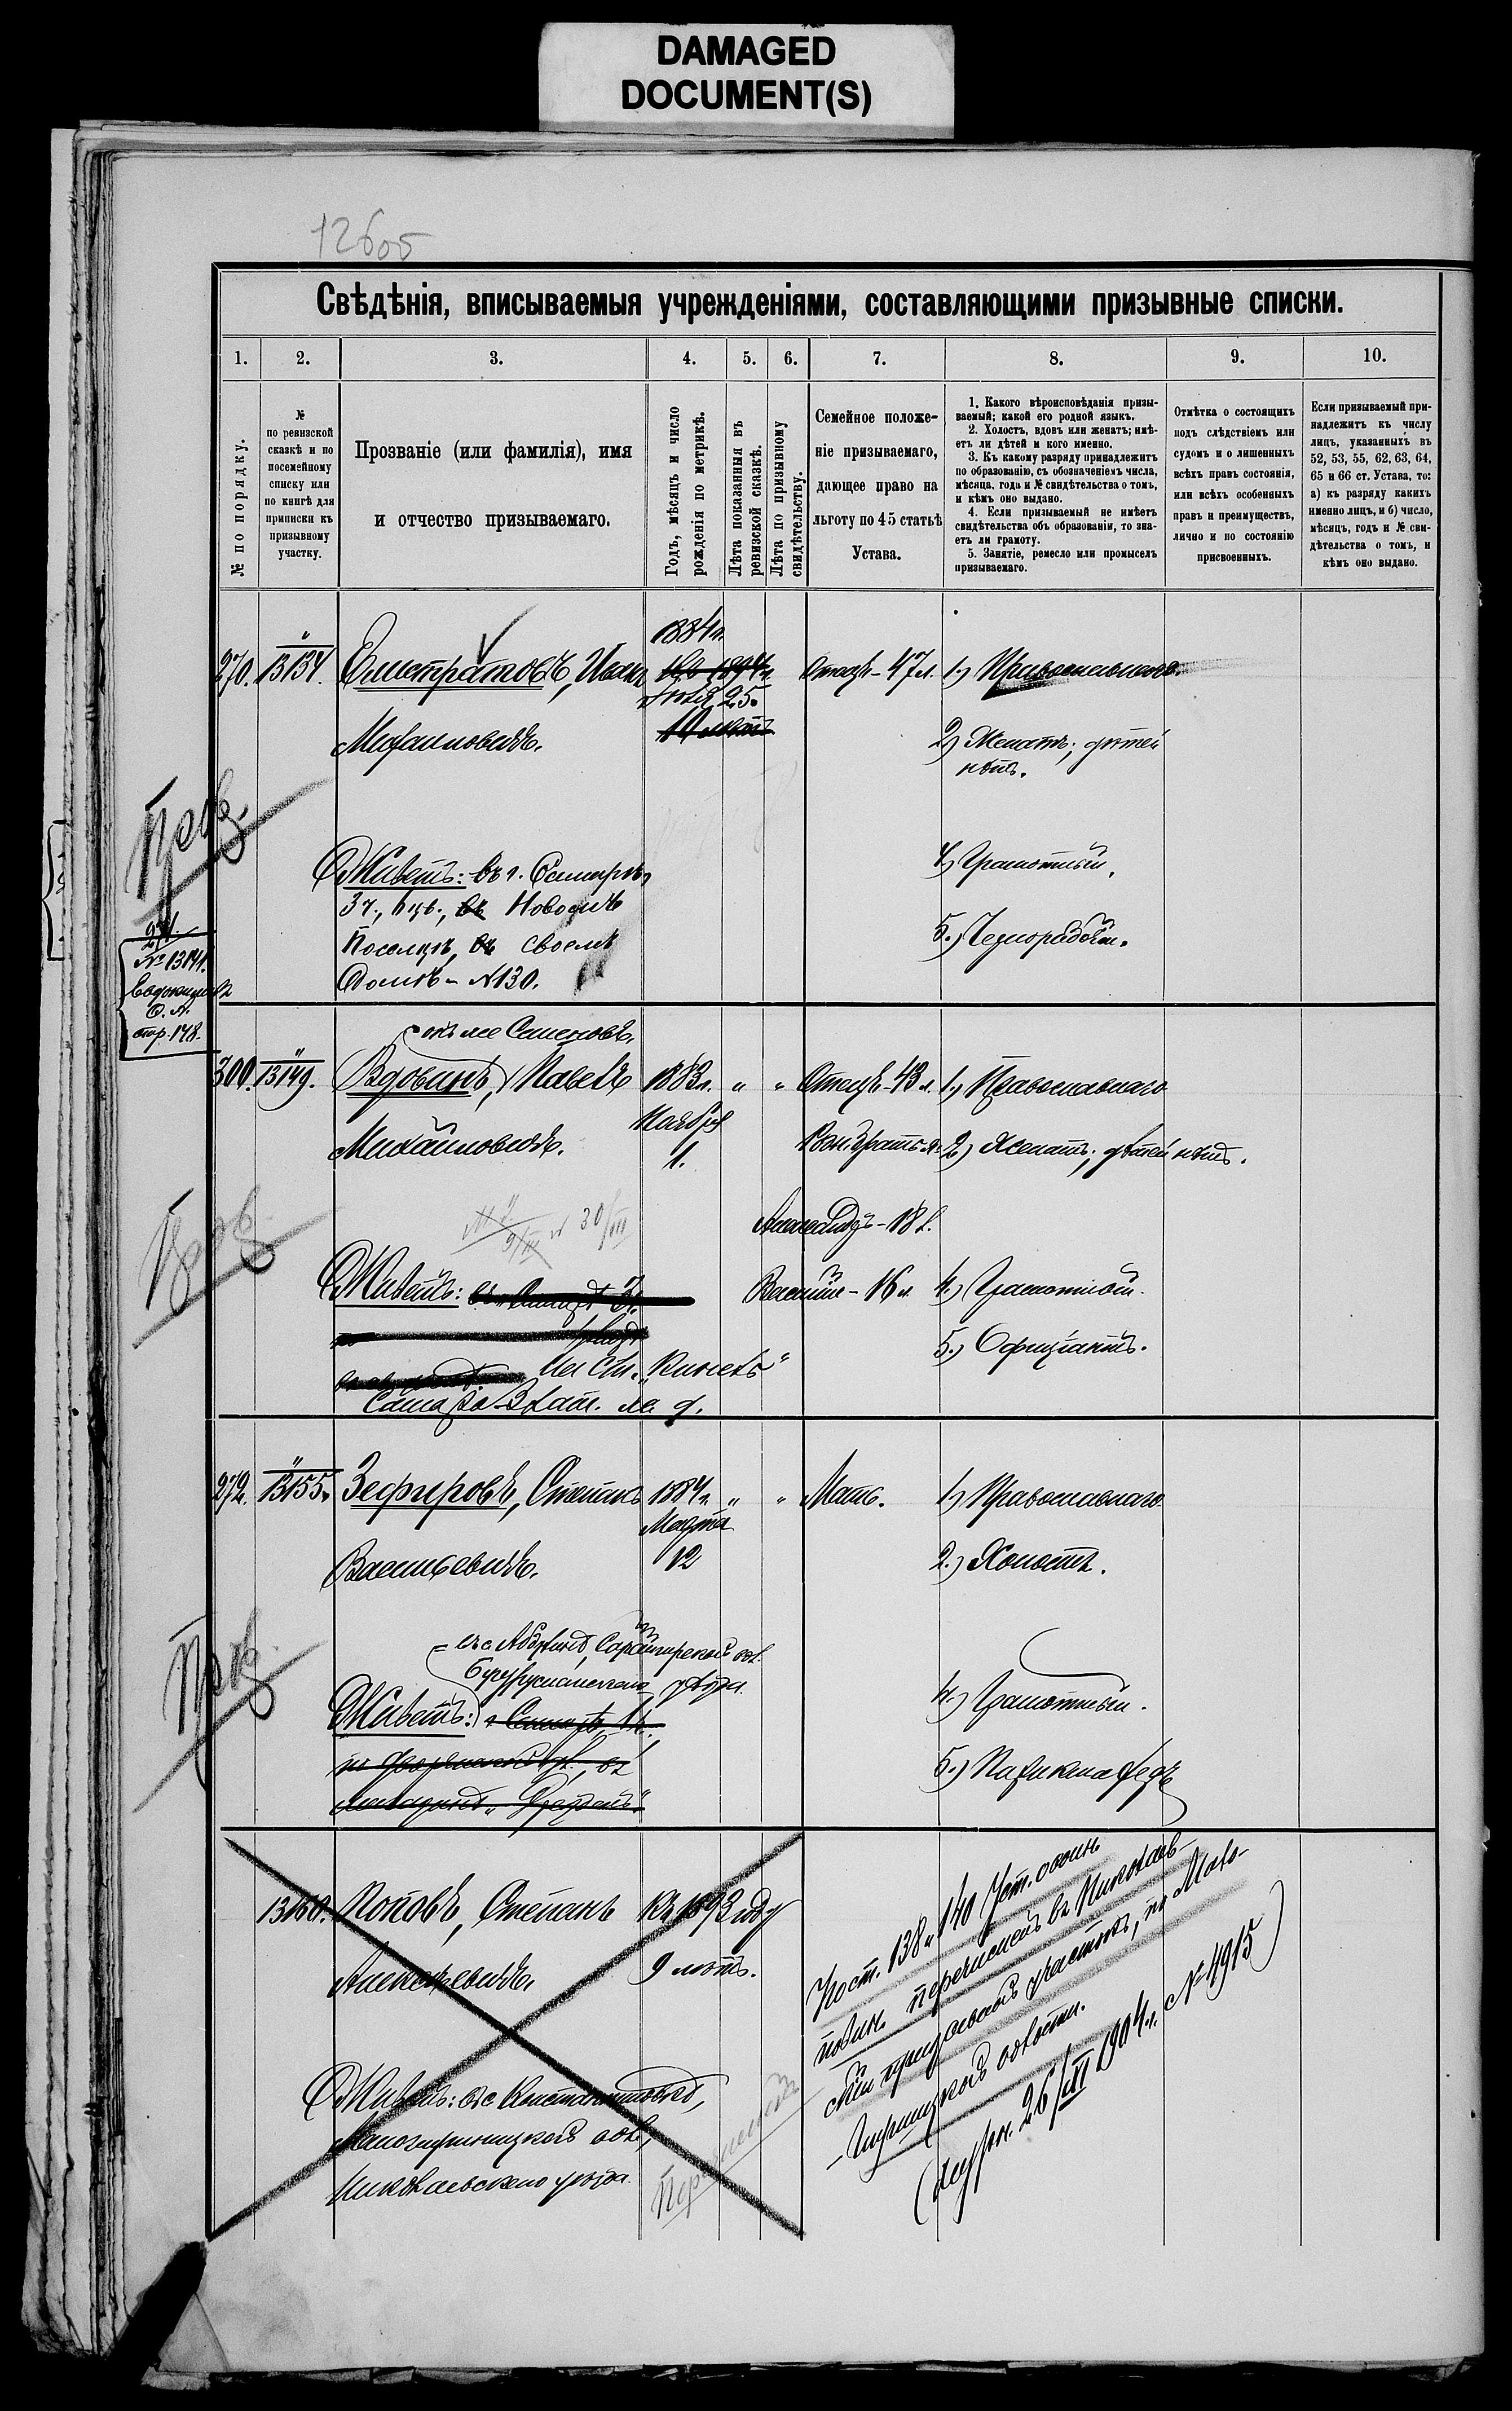 DAMAGED
DOCUMENT(S)
12605
Свѣдѣнія, вписываемыя учрежденіями, составляющими призывные списки.
1. 2. 3. 4. 5. 6. 7. 8. 9. 10.
№ по порядку.
№
по ревизской
сказкѣ и по
посемейному
списку или
по книгѣ для
приписки къ
призывному
участку.
Прозваніе (или фамилія), имя
и отчество призываемаго.
Годъ, мѣсяцъ и число
рожденія по метрикѣ.
Лѣта показанныя въ
ревизской сказкѣ.
Лѣта по призывному
свидѣтельству.
Семейное положе-
ніе призываемаго,
дающее право на
льготу по 45 статьѣ
Устава.
1. Какого вѣроисповѣданія призы-
ваемый; какой его родной языкъ.
2. Холостъ, вдовъ или женатъ; имѣ-
етъ ли дѣтей и кого именно.
3. Къ какому разряду принадлежитъ
по образованію, съ обозначеніемъ числа,
мѣсяца, года и № свидѣтельства о томъ,
и кѣмъ оно выдано.
4. Если призываемый не имѣетъ
свидѣтельства объ образованіи, то зна-
етъ ли грамоту.
5. Занятіе, ремесло или промыселъ
призываемаго.
Отмѣтка о состоящихъ
подъ слѣдствіемъ или
судомъ и о лишенныхъ
всѣхъ правъ состоянія,
или всѣхъ особенныхъ
правъ и преимуществъ,
лично и по состоянію
присвоенныхъ.
Если призываемый при-
надлежитъ къ числу
лицъ, указанныхъ въ
52, 53, 55, 62, 63, 64,
65 и 66 ст. Устава, то:
а) къ разряду какихъ
именно лицъ, и б) число,
мѣсяцъ, годъ и № сви-
дѣтельства о томъ, и
кѣмъ оно выдано.
1884 г.
270. 13134. Елистратовъ, Иванъ 1894 г. Отецъ - 47 л. 1) Православнаго.
25.
Михаиловичъ. 10 лѣтъ 2) Женатъ; дѣтей
нѣтъ.
Живетъ: въ г. Самарѣ, 4) Грамотный.
3 ч., въ Новомъ
Поселкѣ, въ своемъ 5.) Чернорабоч.
Домѣ - № 130.
271.
№ 13141.
стр. 148.
онъ же Семеновъ,
300. 13149. Вдовинъ, Павелъ 1883 г. " " Отецъ - 43 л. 1.) Православнаго
Ноября
Михаиловичъ. 1. 2) Женатъ; дѣтей нѣтъ.
9/III 30/III
Александръ - 18 л.
Живетъ: Василій - 16 л. 4.) Грамотный.
5.) Официантъ.
На ст. „Кинель"
Самаро-Злат. ж. д.
272. 13155. Зефировъ, Степанъ 1884 г. " " Мать. 1) Православнаго
Марта
Васильевичъ. 12 2.) Холостъ.
Бугурусланскаго уѣзда.
Живетъ: 4.) Грамотный.
5.) Парикмахеръ
13160. Поповъ, Степанъ Къ 1893 году
Алексѣевичъ. 9 лѣтъ.
Живетъ: въ с. Константиновкѣ,
Николаевскаго уѣзда.
По ст. 138 и 140 Уст. о воин.
повин. перечисленъ въ Николаев-
скій призывной участокъ, по Мало-
волости.
(журн. 26/III 1904 г. № 4915)